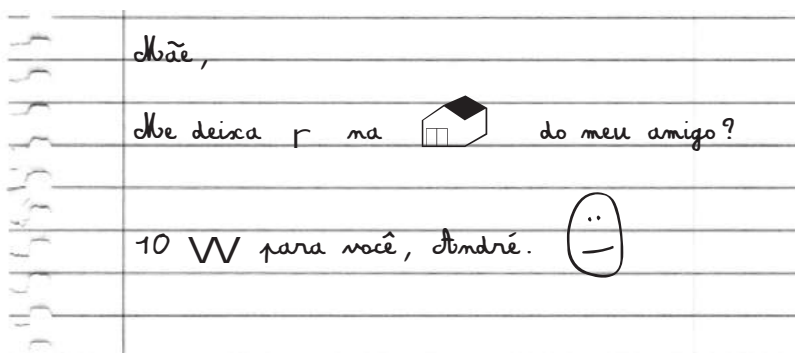 Mãe,
Me deixa r na do meu amigo?
10 W para você, André.